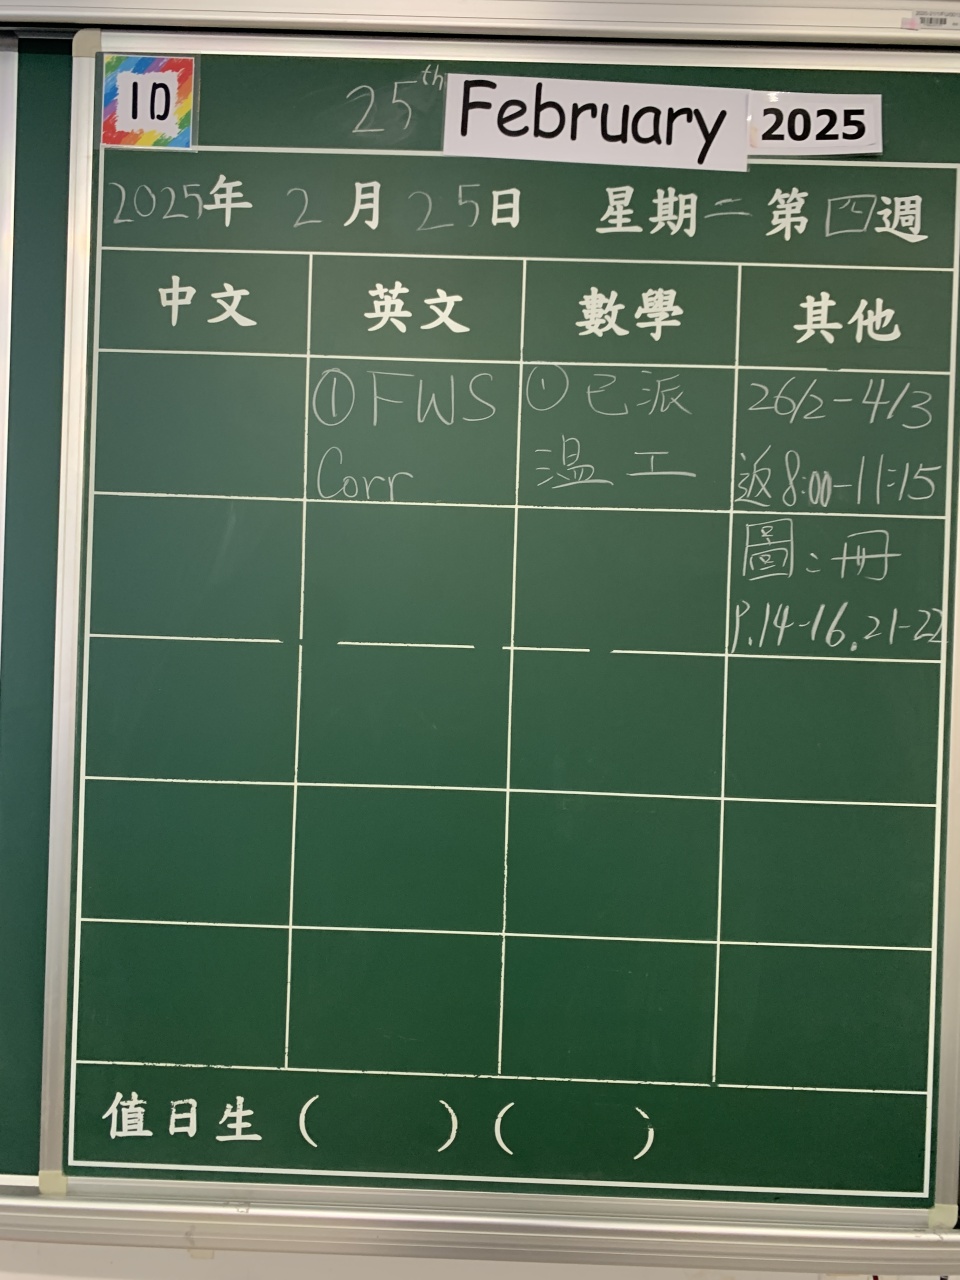 1D
25th February 2025
2025年 2月25日 星期二 第四週
中文 英文 數學 其他
①FWS
Corr
①已派
溫工
26/2-4/3
返8:00-11:15
圖:冊
P.14-16.21-22
值日生 ( ) ( )